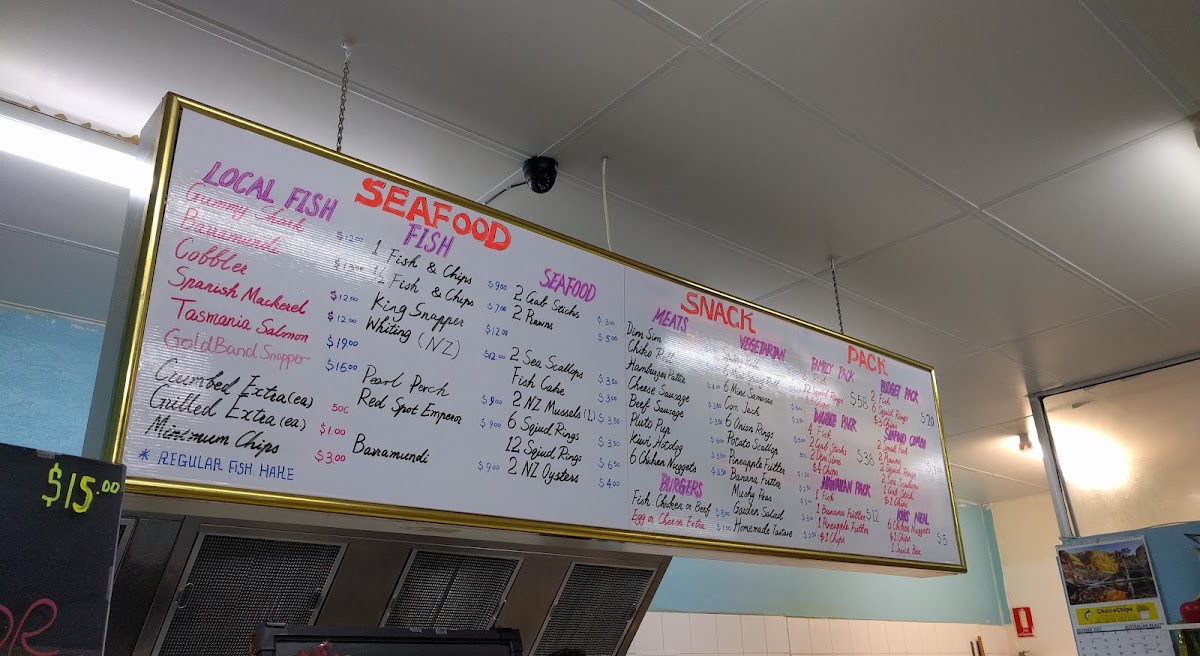 SEAFOOD
LOCAL FISH
Gummy Shark $12.00
Barramundi $15.00
Cobbler $12.00
Spanish Mackerel $12.00
Tasmania Salmon $19.00
GoldBand Snapper $16.00
Crumbed Extra (ea) 50C
Grilled Extra (ea) $1.00
Minimum Chips $3.00
* REGULAR FISH HAKE
FISH
1 Fish & Chips $9.00
½ Fish & Chips $7.00
King Snapper $12.00
Whiting (NZ) $12.00
Pearl Perch $9.00
Red Spot Emperor $9.00
Barramundi $9.00
SEAFOOD
2 Crab Sticks $3.00
2 Prawns $5.00
2 Sea Scallops $3.50
Fish Cake $3.00
2 NZ Mussels (L) $3.50
6 Squid Rings $3.50
12 Squid Rings $6.50
2 NZ Oysters $4.00
SNACK
MEATS
Dim Sim
Chiko Roll
Hamburger Pattie
Cheese Sausage
Beef Sausage
Pluto Pup
Kiwi Hotdog
6 Chicken Nuggets
BURGERS
Fish Chicken or Beef
Egg or Cheese Extra
VEGETARIAN
6 Mini Samosas
Corn Jack
6 Onion Rings
Potato Scallop
Pineapple Fritter
Banana Fritter
Mushy Peas
Garden Salad
Homemade Tartare
PACK
FAMILY PACK
$58
DOUBLE PACK
4 Fish
2 Crab Sticks
2 Dim Sims
$4 Chips
$38
HAWAIIAN PACK
1 Fish
1 Banana Fritter
1 Pineapple Fritter
$1 Chips
$12
BUDGET PACK
2 Fish
6 Squid Rings
$3 Chips
$20
SEAFOOD COMBO
2 Small Fish
2 Prawns
2 Sea Scallops
1 Crab Stick
$1 Chips
KIDS MEAL
6 Chicken Nuggets
$1 Chips
1 Juice Box
$5
$15.00
OR
ChoiceChips